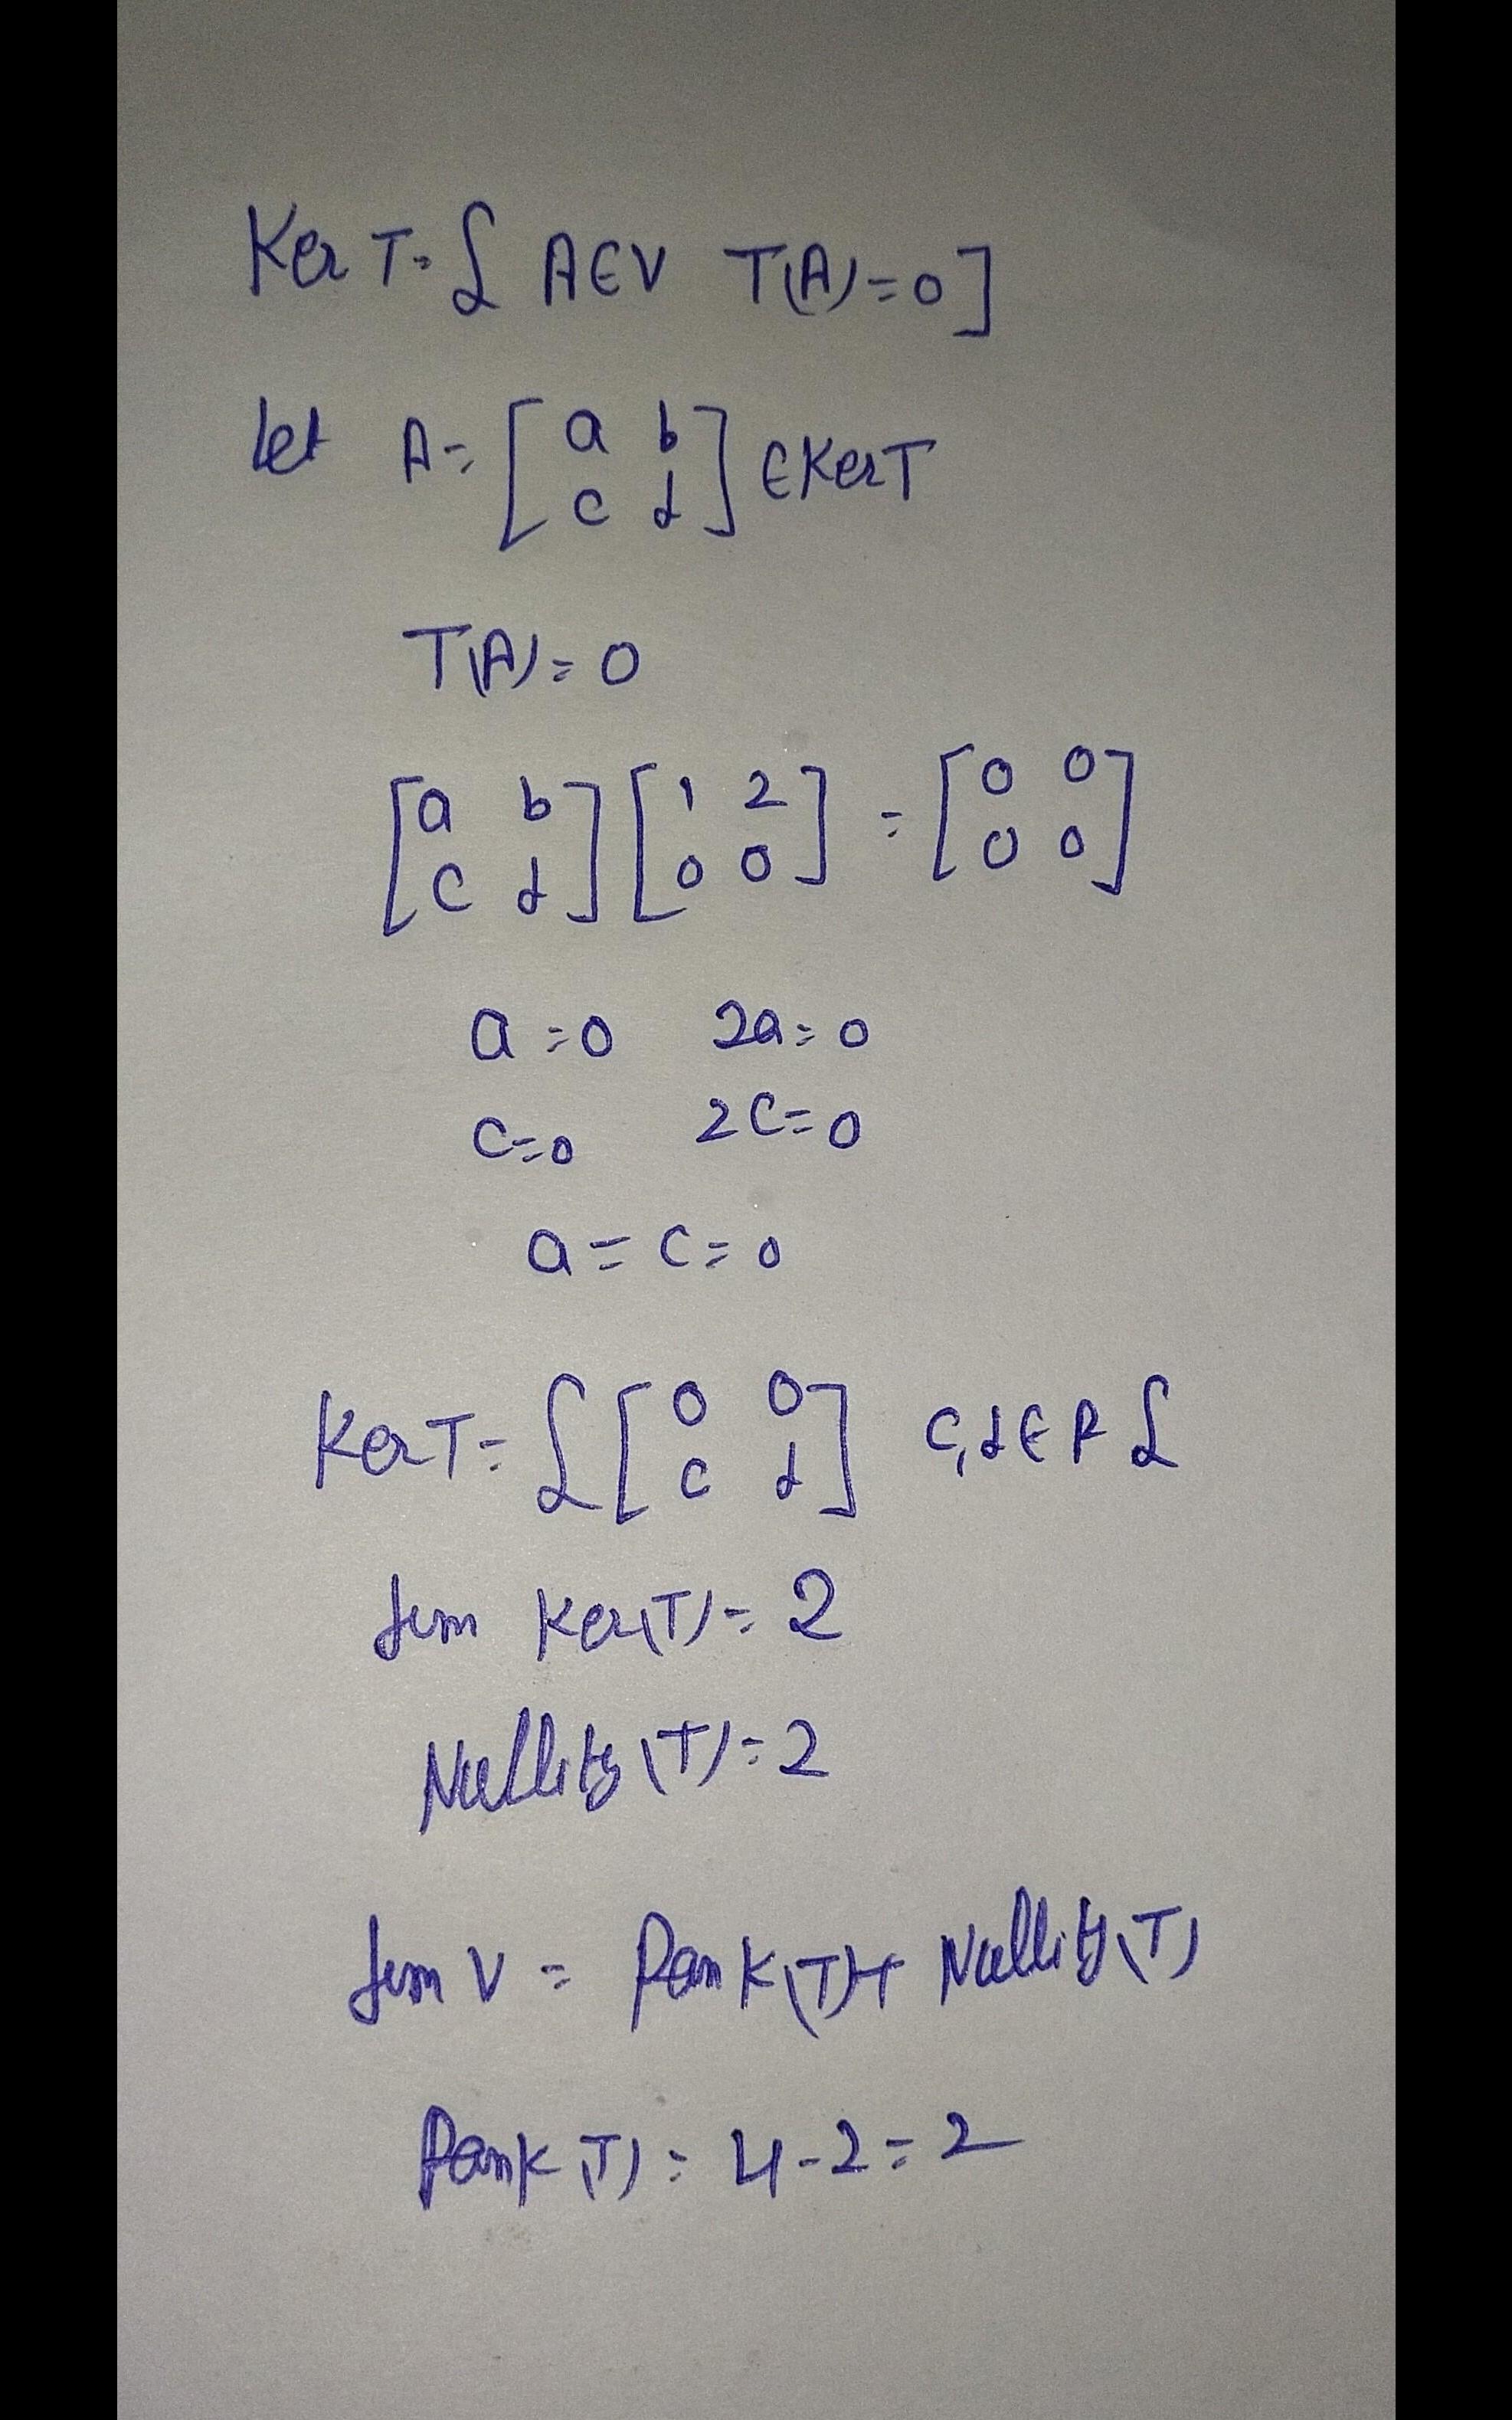 Ker T = { A ∈ V T(A) = 0 ]
let A = [ a b ; c d ] ∈ Ker T
T(A) = 0
[ a b ; c d ] [ 1 2 ; 0 0 ] = [ 0 0 ; 0 0 ]
a = 0 2a = 0
c = 0 2c = 0
a = c = 0
Ker T = { [ 0 0 ; c d ] c, d ∈ R {
dim Ker(T) = 2
Nullity (T) = 2
dim V = Rank(T) + Nullity(T)
Rank(T) = 4 - 2 = 2